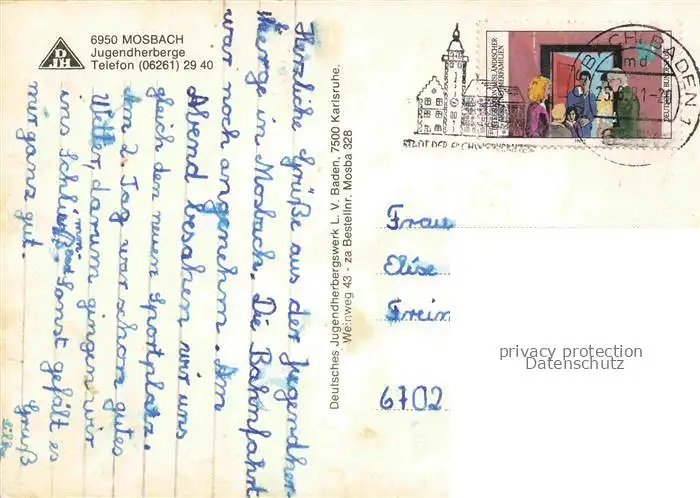 6950 MOSBACH
Jugendherberge
Telefon (06261) 29 40
DJH
Herzliche Grüße aus der Jugendher
berge in Mosbach. Die Bahnfahrt
war noch angenehm. Am
Abend besahen wir uns
gleich den neuen Sportplatz.
Am 2. Tag war schon gutes
Wetter, darum gingen wir
ins Schwimm
bad. Sonst gefällt es
mir ganz gut.
Gruß
Silke
Deutsches Jugendherbergswerk L. V. Baden, 7500 Karlsruhe.
Weinweg 43 - za Bestellnr. Mosba 328
DEUTSCHE BUNDESPOST
Frau
Elise
Frein
6702
privacy protection
Datenschutz